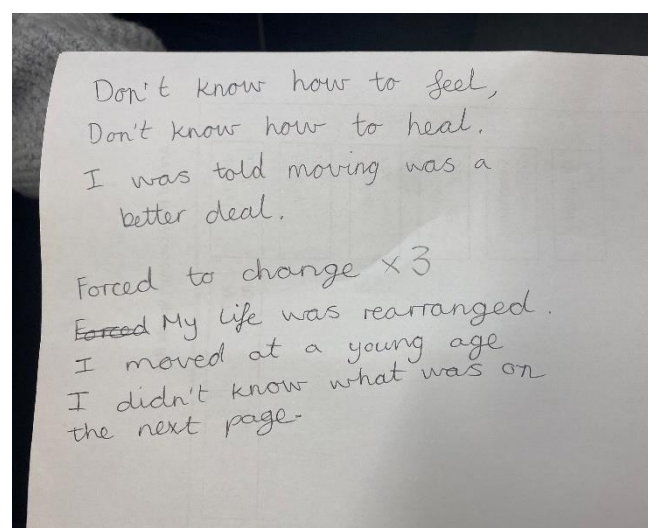 Don't know how to feel,
Don't know how to heal.
I was told moving was a
better deal.
Forced to change x3
Forced My life was rearranged.
I moved at a young age
I didn't know what was on
the next page.